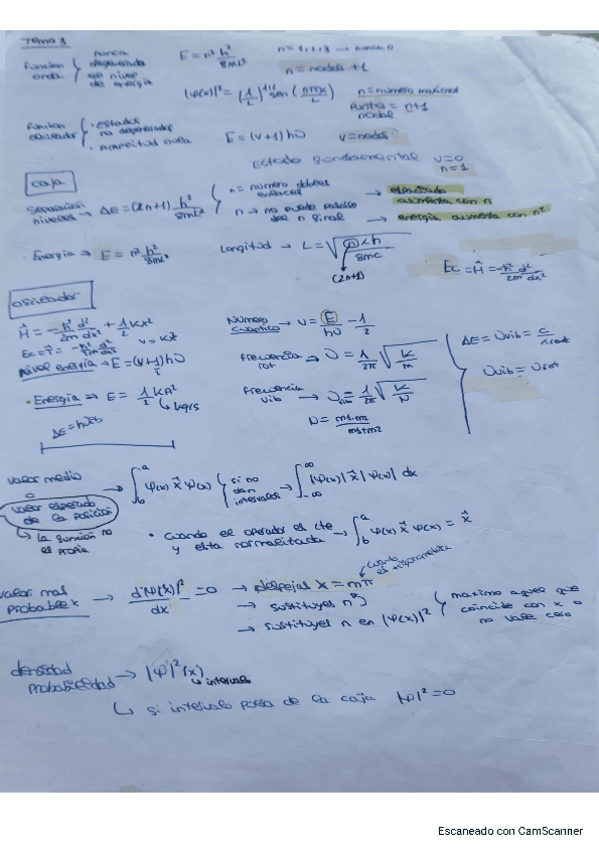 Tema 3
funcion onda { nunca degenerada de nivel de energia
E = n² h²/8ml²   n = 1, 2, 3 → nunca 0
n = nodos + 1
|ψ(x)|² = (1/2)^1/2 sen (nπx/L)   n = numero maximos
nodal = n+1
funcion oscilador { · estados no degenerados
· Amplitud
E = (v+1) hυ   v = nodos
Estado fundamental v=0
n=1
caja
Separacion niveles → ΔE = (2n+1) h²/8ml² { n = numero dobles enlaces → espaciado aumenta con n
n → no puede ser n final → energia aumenta con n²
· Energia → E = n² h²/8ml²   Longitud → L = √ λh/8mc
(2n+1)
Ec = Ĥ = -ħ² d²/2m dx²
oscilador
Ĥ = -ħ² d²/2m dx² + 1/2 kx²
Ec = T̂ = -ħ² d²/2m dx²
Nivel energia → E = (v+1/2) hυ
· Energia → E = 1/2 kA²
ΔE = hυ
Numero cuantico → υ = E/hυ - 1/2
frecuencia rot → υ = 1/2π √k/m
frecuencia vib → υvib = 1/2π √k/N
N = m1·m2/m1+m2
ΔE = υvib = c/λrot
υvib = υrot
valor medio o valor esperado de la posicion → ∫ₐᵇ ψ(x) x̂ ψ(x) { si no dan intervalos → ∫ |ψ(x)| x̂ |ψ(x)| dx
↳ la funcion no es propia
· cuando el operador es cte y esta normalizada → ∫ ψ(x) x̂ ψ(x) = x̂
valor mas probable x → d|ψ(x)|²/dx = 0 → despejas x = mπ
cuando es trigonometrica
→ sustituyes nº
→ sustituyes n en |ψ(x)|² { maximo aquel que coincide con x o no vale cero
densidad probabilidad → |ψ|²(x)
↳ intervalo
↳ si intervalo pasa de la caja |ψ|² = 0
Escaneado con CamScanner